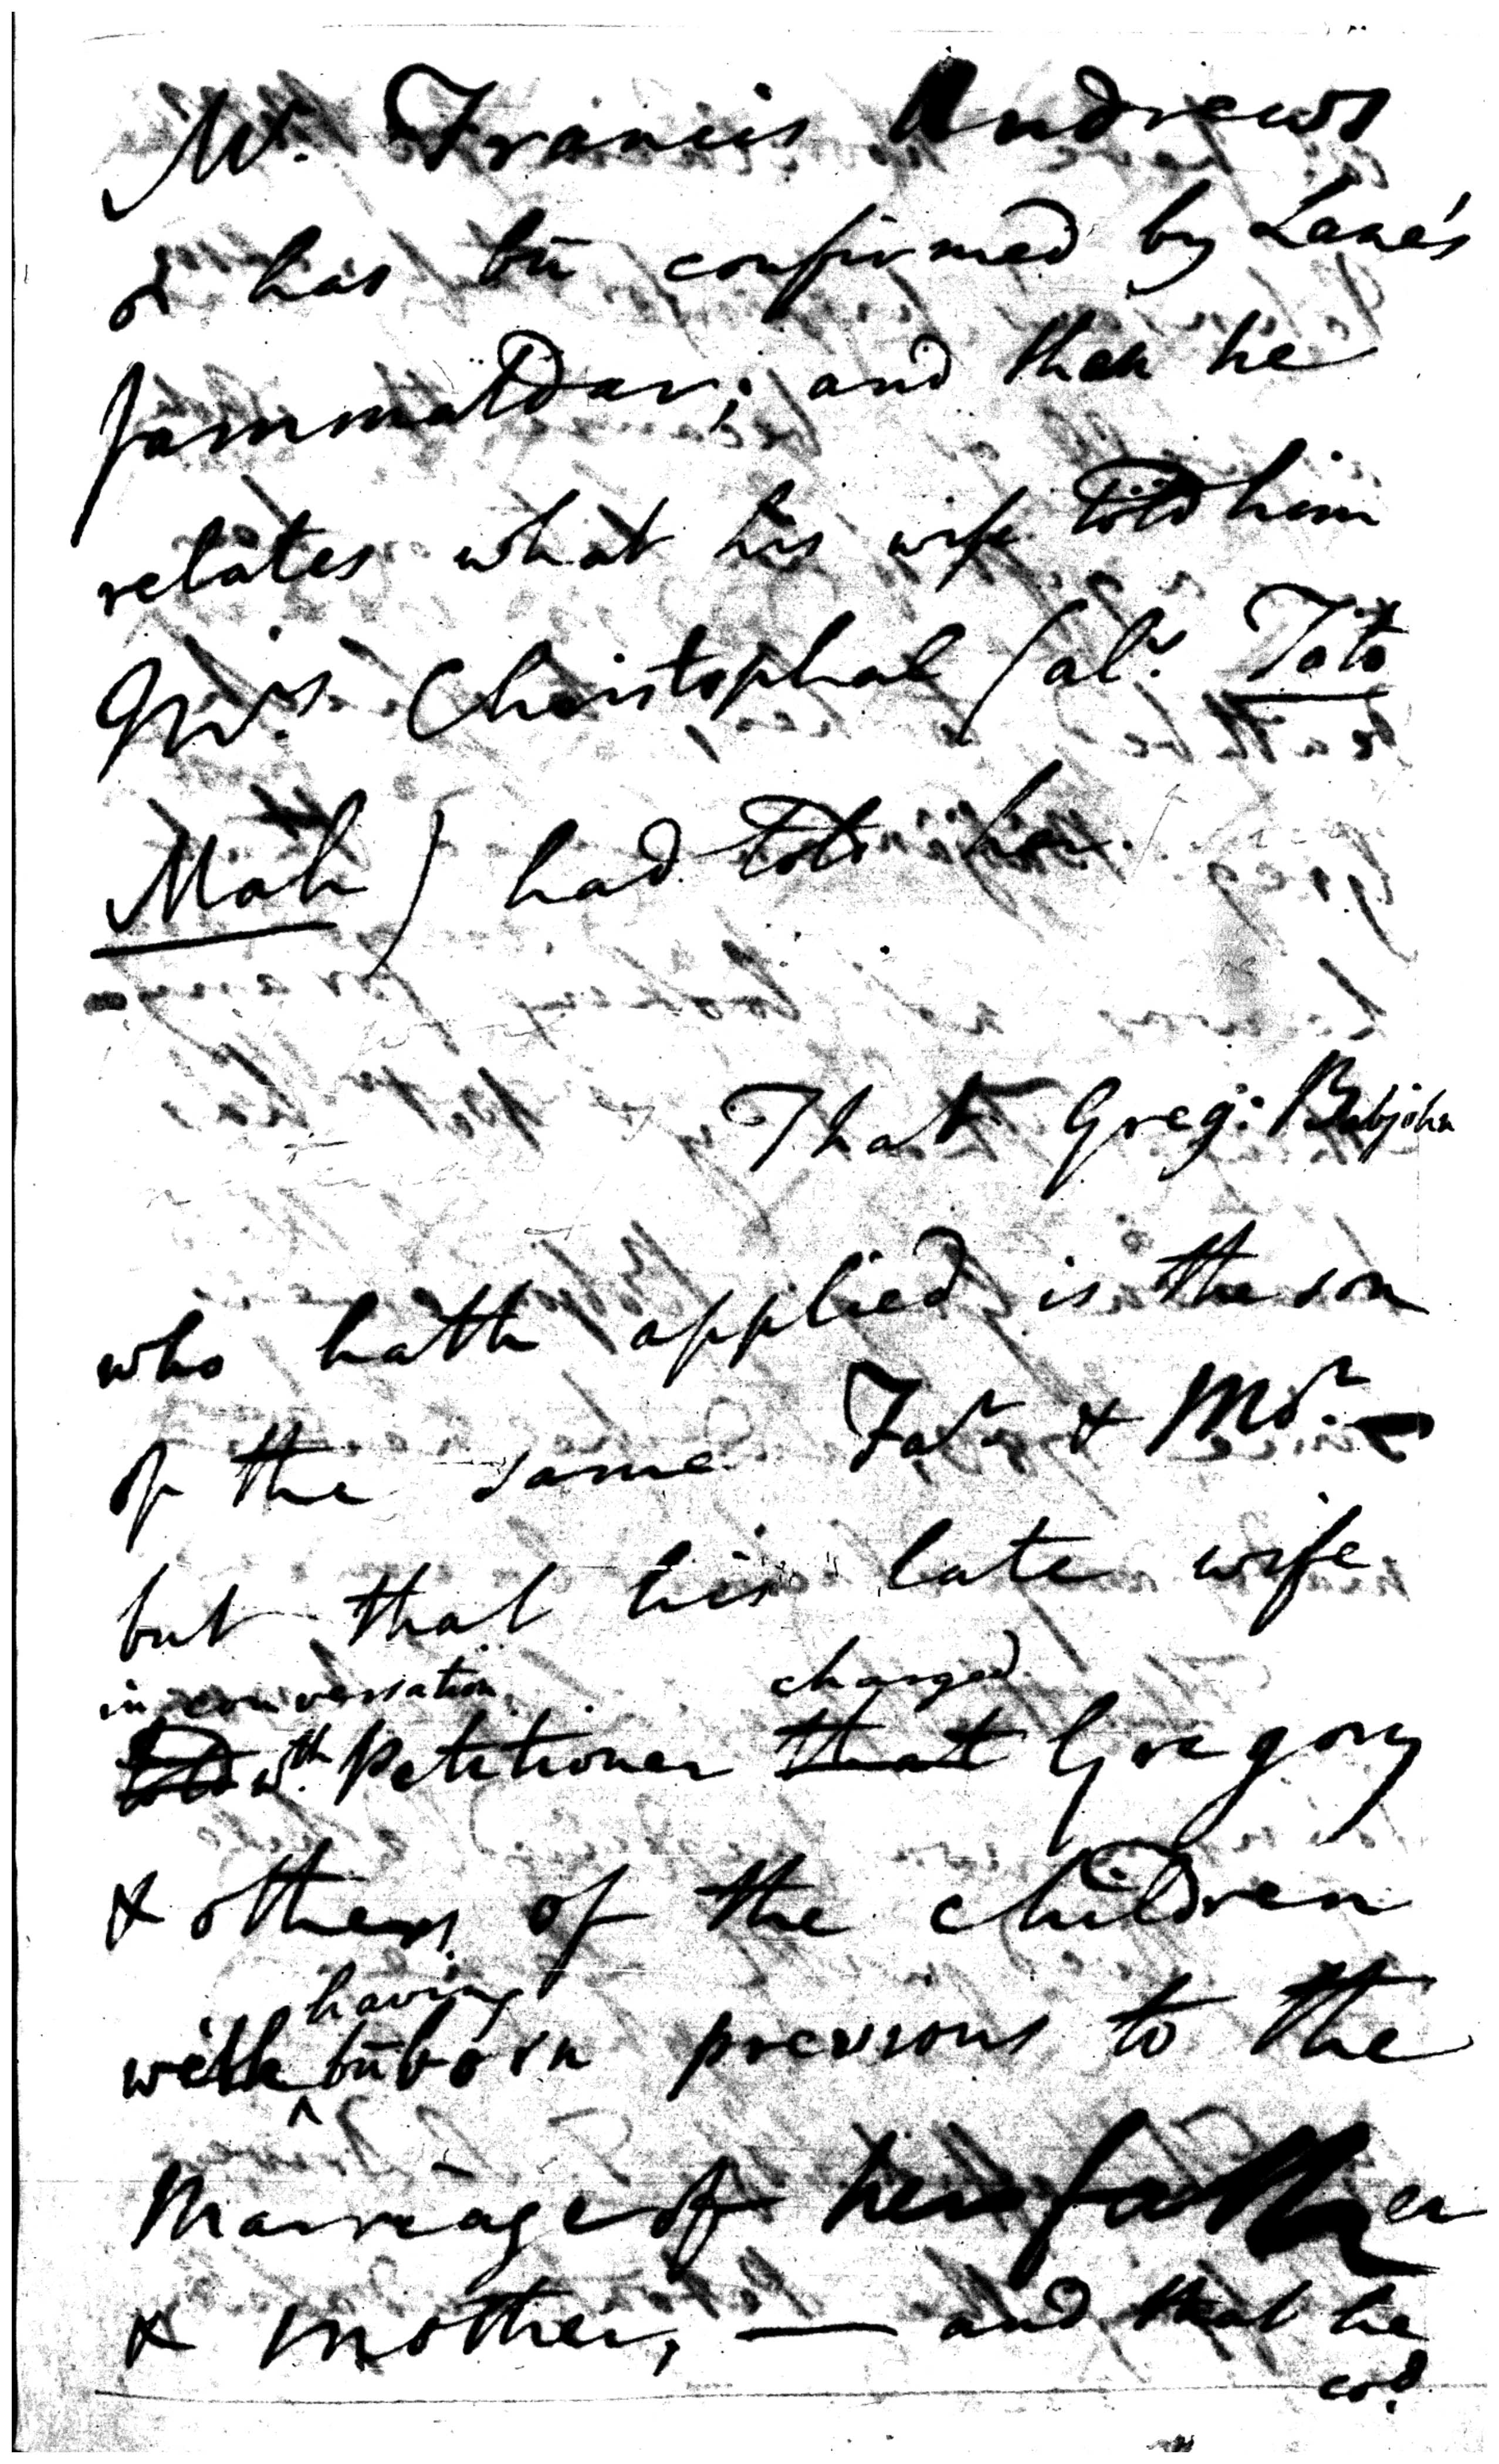 Mr. Francis Andrews
& has bn confirmed by Lane's
Jammatdar; and then he
relates what his wife told him
Mrs. Christophal (als. Toto
Mah) had told her.
That Greg: Babjohn
who hath applied is the son
of the same Far. & Mor. —
but that his late wife
in conversation charged
told wth. Petitioner that Gregory
& others of the children
having
with bn born previous to the
Marriage of her father
& mother, — and that he
cod.